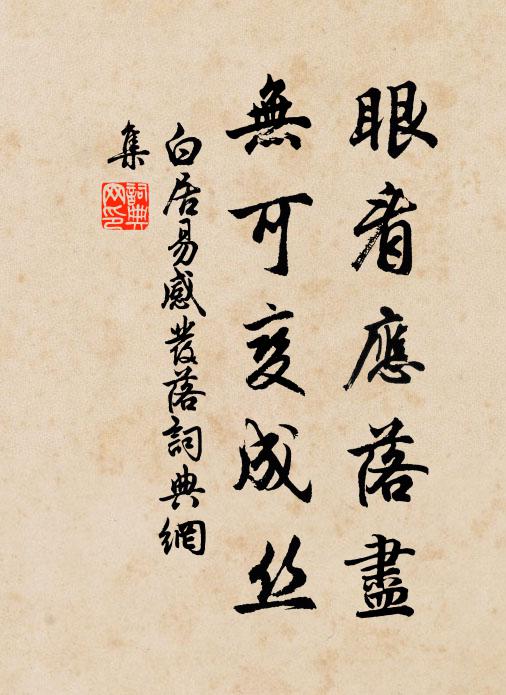 眼看應落盡
無可变成丝
白居易感發落詞典網
集
詞典
网印